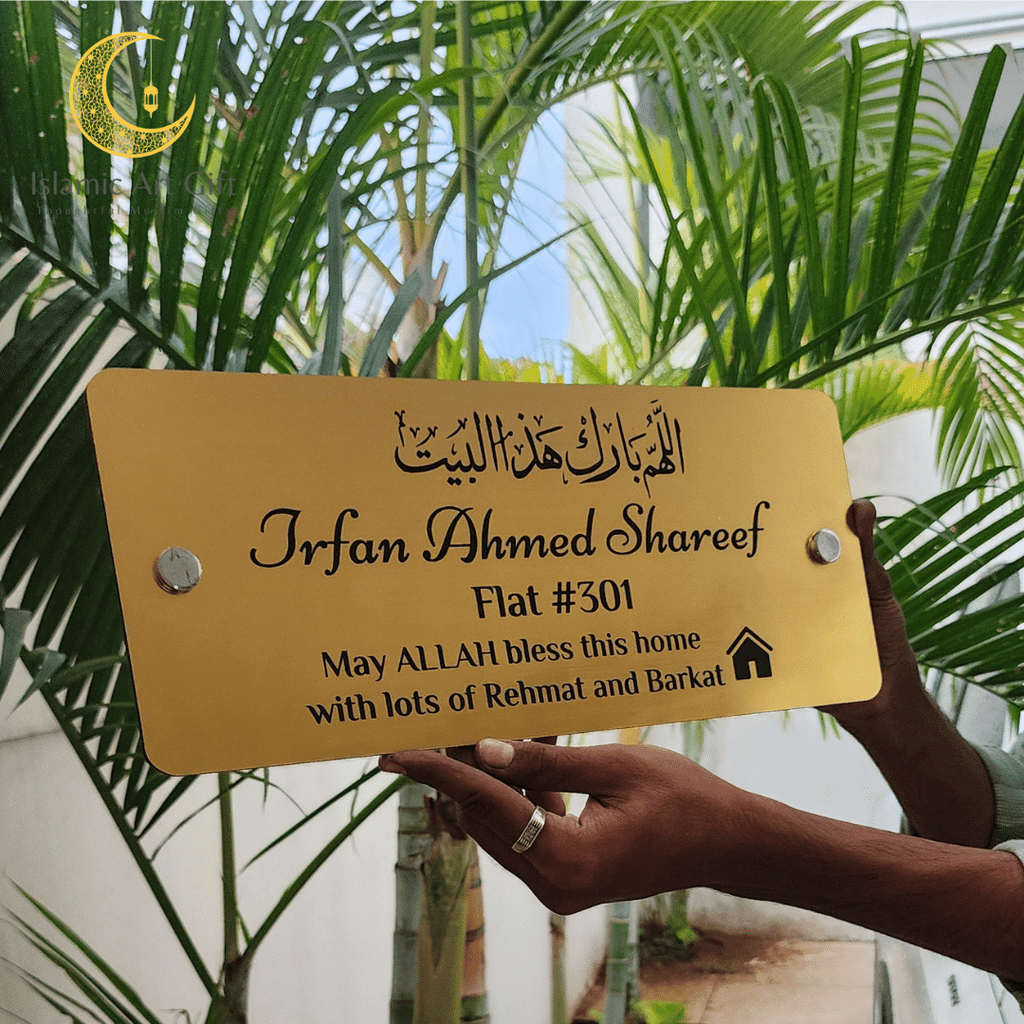 Islamic Art Gift
اللهم بارك هذا البيت
Irfan Ahmed Shareef
Flat #301
May ALLAH bless this home
with lots of Rehmat and Barkat